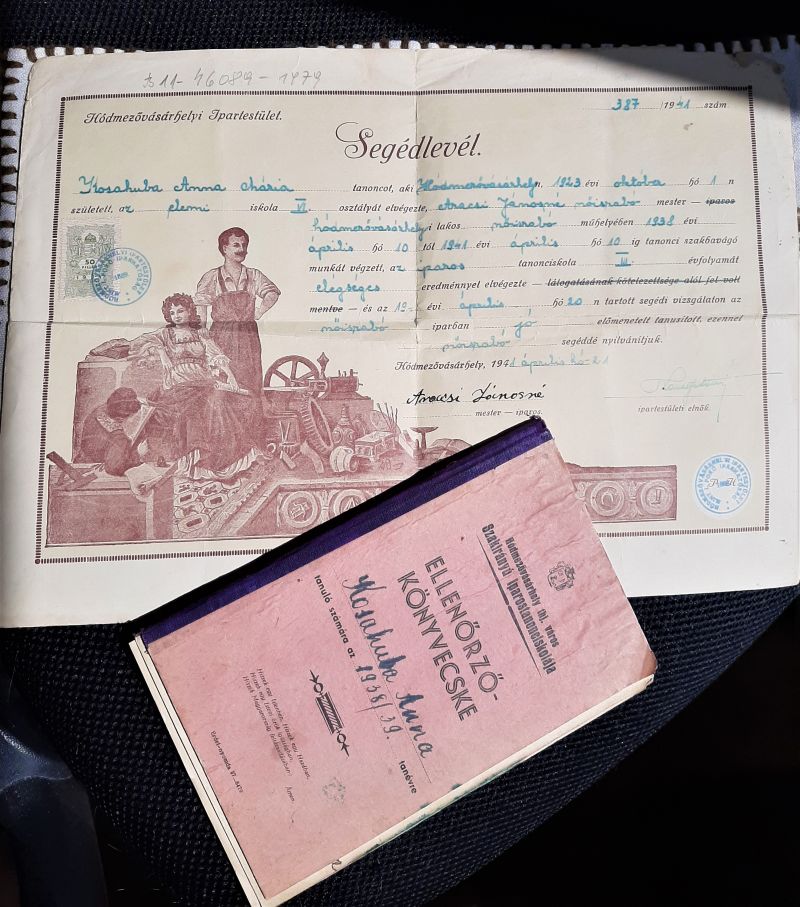 B 11-46089-1979
387/1941 szám
Hódmezővásárhelyi Ipartestület.
Segédlevél.
Kosahuba Anna Mária tanoncot, aki Hódmezővásárhelyn, 1923 évi október hó 1 n
született, az elemi iskola VI osztályát elvégezte, Aracsi Jánosné nőiszabó mester – iparos
hódmezővásárhelyi lakos nőiszabó műhelyében 1938 évi
április hó 10 től 1941 évi április hó 10 ig tanonci szakbavágó
munkát végzett, az iparos tanonciskola III. évfolyamát
elégséges eredménnyel elvégezte – látogatásának kötelezettsége alól fel volt
mentve – és az 19 évi április hó 20 n tartott segédi vizsgálaton az
nőiszabó iparban jó előmenetelt tanusított, ezennel
nőiszabó segéddé nyilvánítjuk.
Hódmezővásárhely, 1941 április hó 21
Aracsi Jánosné
mester – iparos.
ipartestületi elnök.
50
Hódmezővásárhely thj. Város
Szakirányú Iparostanonciskolája
ELLENŐRZŐ-
KÖNYVECSKE
Kosahuba Anna
tanuló számára az 1938/39. tanévre
Hiszek egy Istenben, Hiszek egy Hazában,
Hiszek egy isteni örök igazságban,
Hiszek Magyarország feltámadásában. Ámen.